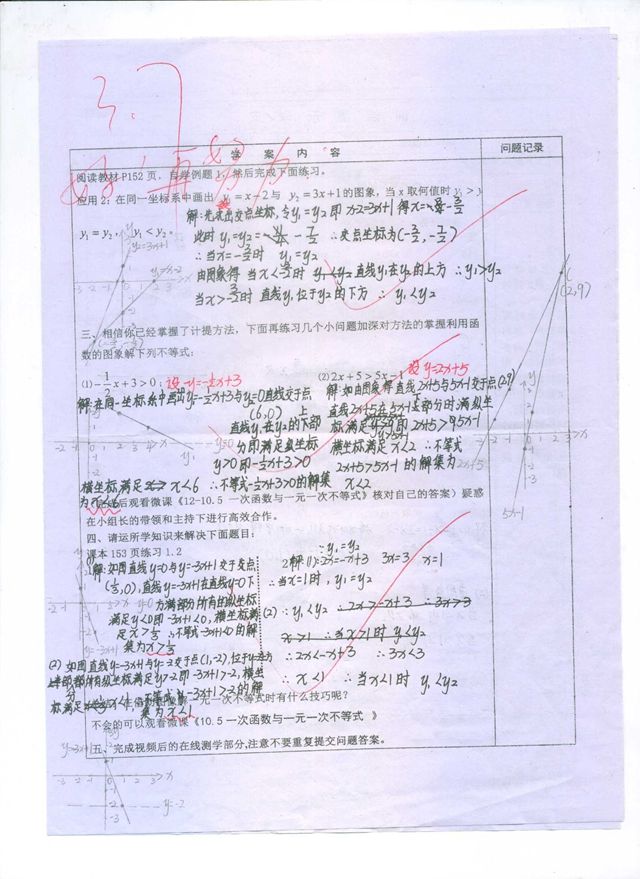 3.7
好！再努力
学 案 内 容
问题记录
阅读教材P152页，自学例题1，然后完成下面练习。
应用2：在同一坐标系中画出 y₁=x-2与 y₂=3x+1的图象，当x取何值时y₁>y₂
y₁=y₂， y₁<y₂。
解：先求出交点坐标，令y₁=y₂ 即 x-2=3x+1 得x=-3/2
此时 y₁=y₂=-7/2 ∴交点坐标为(-3/2,-7/2)
∴当x=-3/2时 y₁=y₂
由图象得 当x<-3/2时 直线y₁在y₂的上方 ∴y₁>y₂
当x>-3/2时 直线y₁位于y₂的下方 ∴y₁<y₂
y₂=3x+1
y=x-2
(2,9)
三、相信你已经掌握了计提方法，下面再练习几个小问题加深对方法的掌握利用函
数的图象解下列不等式：
(1) -1/2x+3>0； 设y=-1/2x+3
解：在同一坐标系中画出y₁=-1/2x+3与y₂=0直线交于点
(6,0)
直线y₁在y₂的上部
分即满足纵坐标
y>0即-1/2x+3>0
横坐标满足 x<6 ∴不等式-1/2x+3>0的解集
为x<6
(2) 2x+5>5x-1 设y=2x+5
解：如由图象得直线2x+5与5x-1交于点(2,9)
直线2x+5在5x-1上部分时满足纵坐
标满足 即2x+5>5x-1
横坐标满足 x<2 ∴不等式
2x+5>5x-1的解集为
x<2
2x+5
5x-1
后观看微课《12-10.5 一次函数与一元一次不等式》核对自己的答案）疑惑
在小组长的带领和主持下进行高效合作。
四、请运所学知识来解决下面题目：
课本153页练习1.2
(1)解：如图直线y=0与y=-3x+1交于交点
(1/3,0)，直线y=-3x+1在直线y=0下
方满部分所有的纵坐标
满足y<0即-3x+1<0，横坐标满
足x>1/3 ∴不等式-3x+1<0的解
集为x>1/3
(2) 如图直线y=-3x+1与y=-2交于点(1,-2)，位于
纵坐标满足y>-2即-3x+1>-2，横坐
标满足x<1 ∴不等式-3x+1>-2的解
集为x<1
∵y₁=y₂
2解(1)：2x=-x+3 3x=3 x=1
∴当x=1时，y₁=y₂
(2) ∵y₁<y₂
∴2x<-x+3 ∴3x<3
∴x<1 ∴当x<1时 y₁<y₂
一元一次不等式时有什么技巧呢？
不会的可以观看微课《10.5 一次函数与一元一次不等式 》
五、完成视频后的在线测学部分,注意不要重复提交问题答案。
y=-3x+1
y=-2